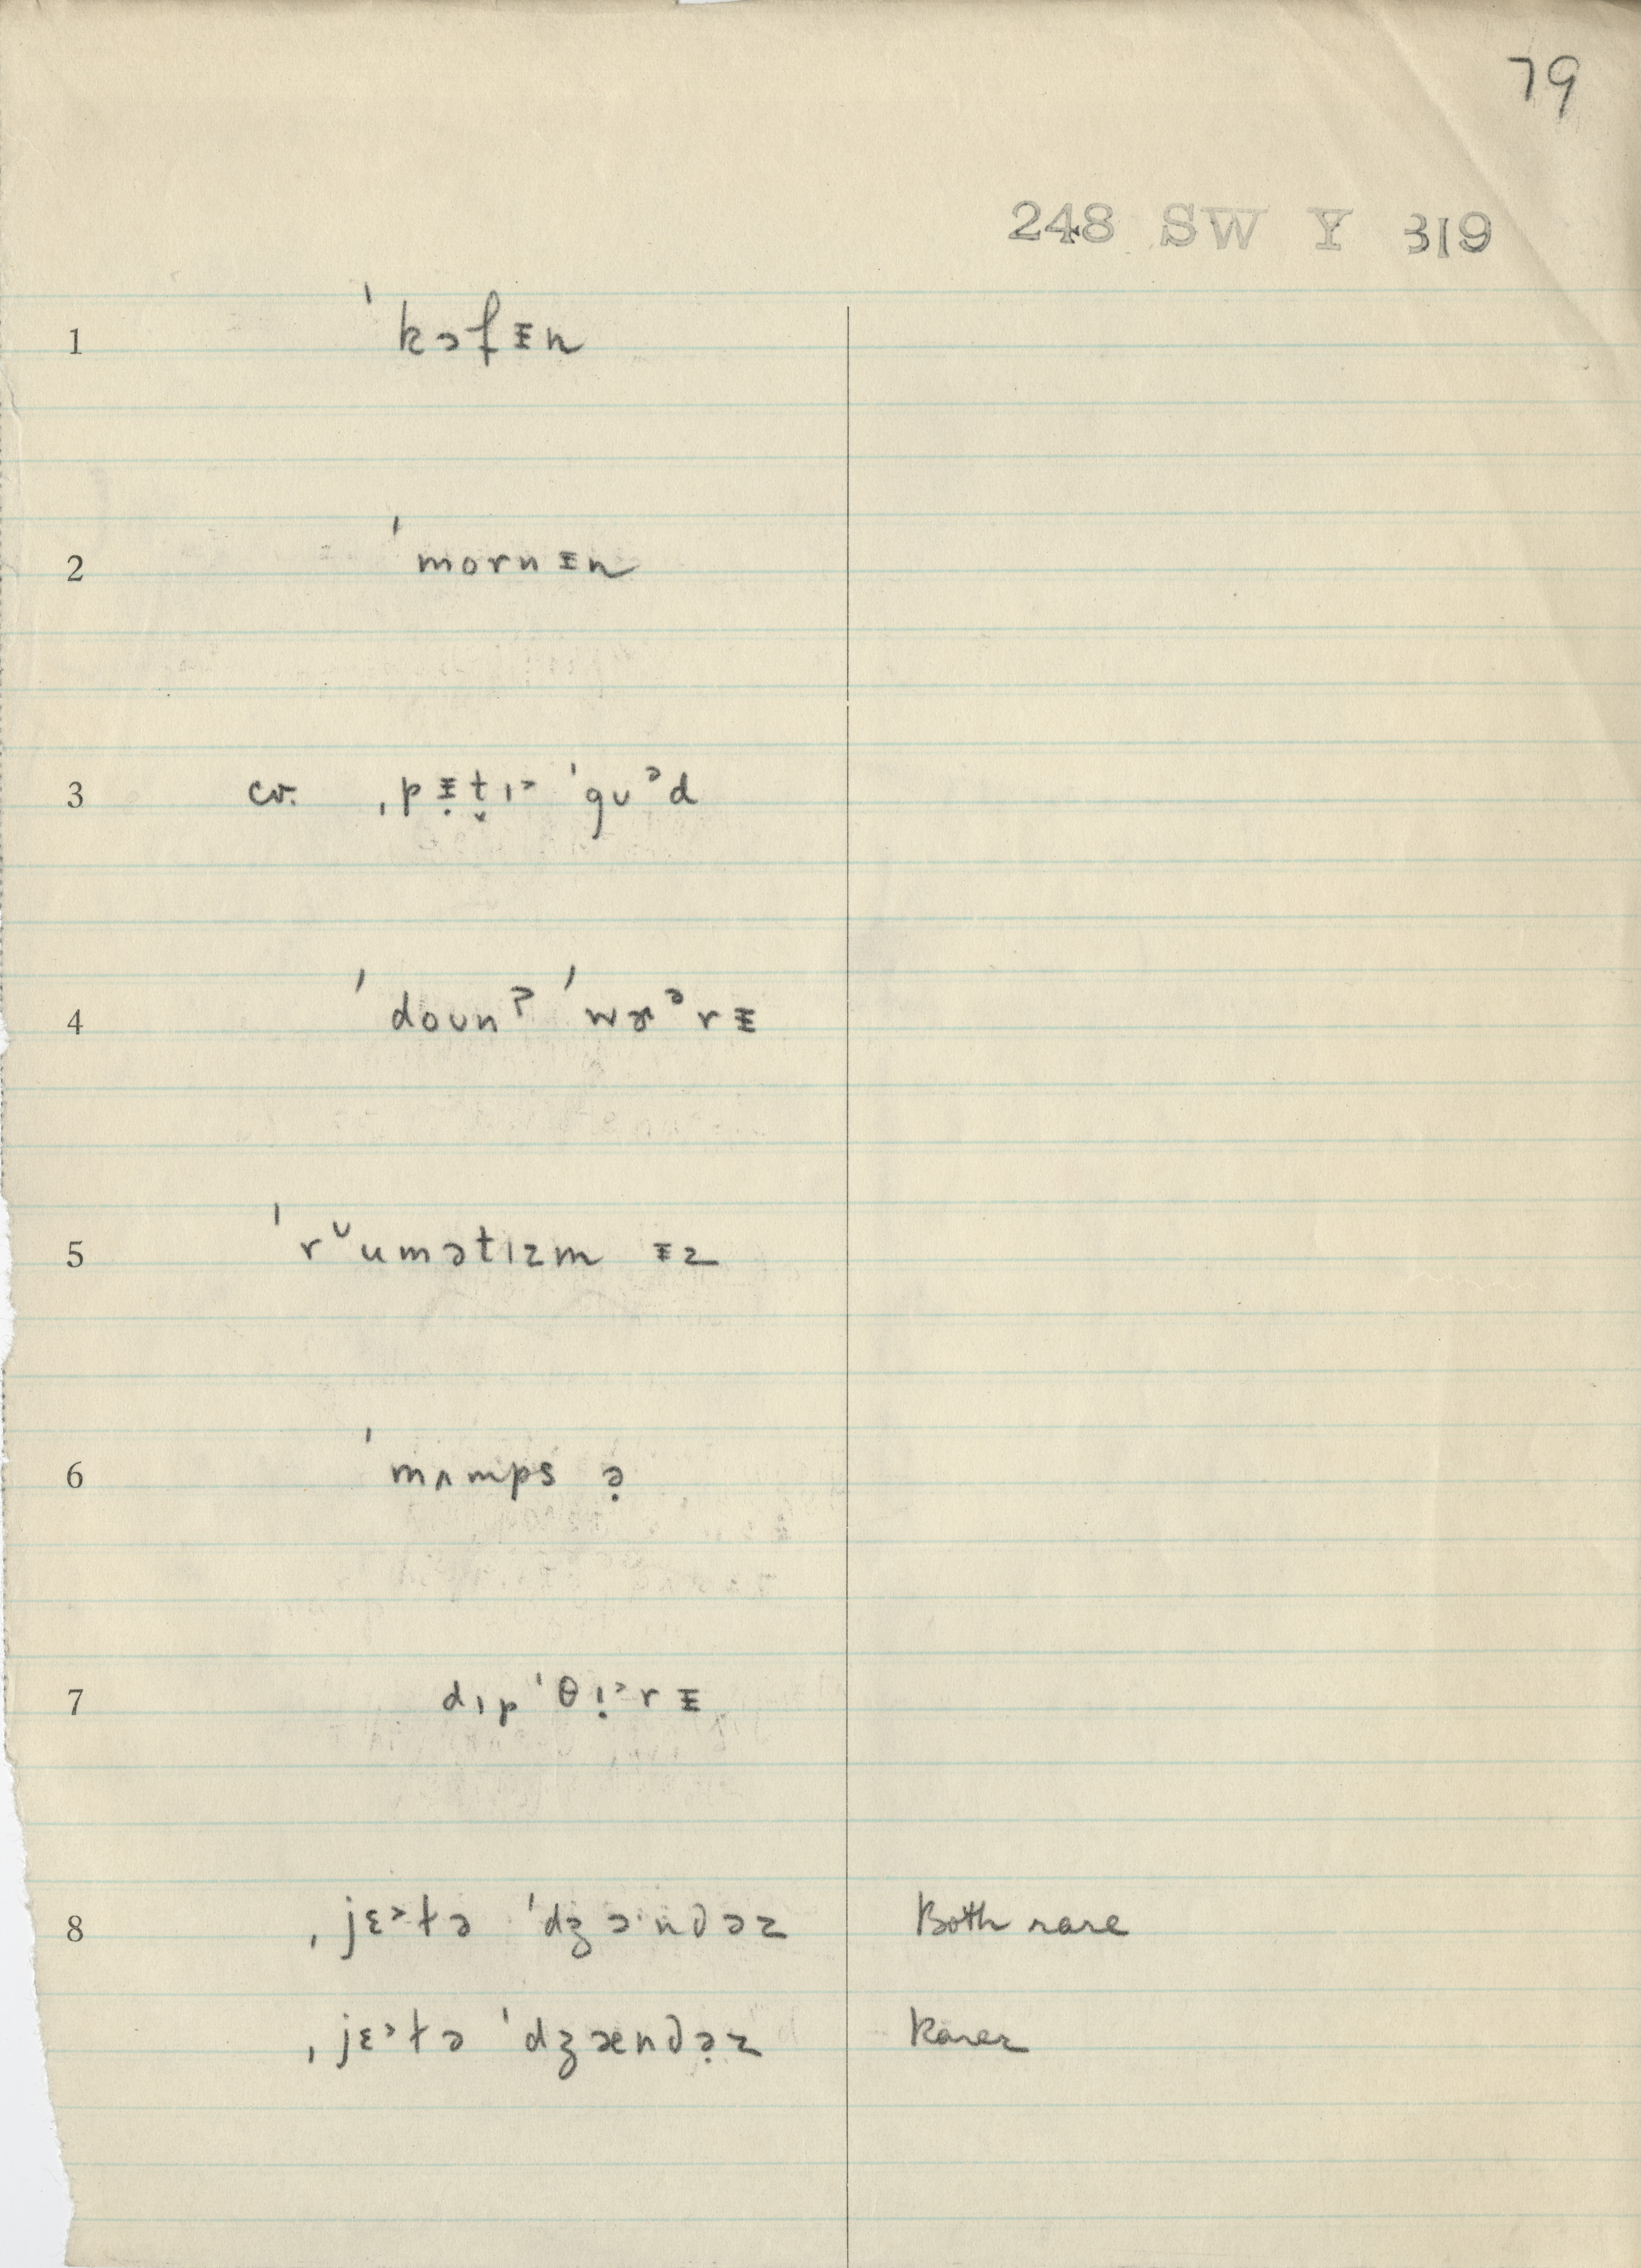 79
248 SW Y 319
1 ˈkɔfᵻn
2 ˈmornᵻn
3 cv. ˌpᵻ̣t̬ɪ˃ ˈgʊᵊd
4 ˈdoʊnˀ ˈwɚᵊrᵻ
5 ˈrᶸumətɪzm ᵻz
6 ˈmʌmps ə̣
7 dɪpˈθɪ̣˃rᵻ
8 ˌjɛ˃ɫə ˈdʒɔˑndəz Both rare
ˌjɛ˃ɫə ˈdʒændə̣z Rarer